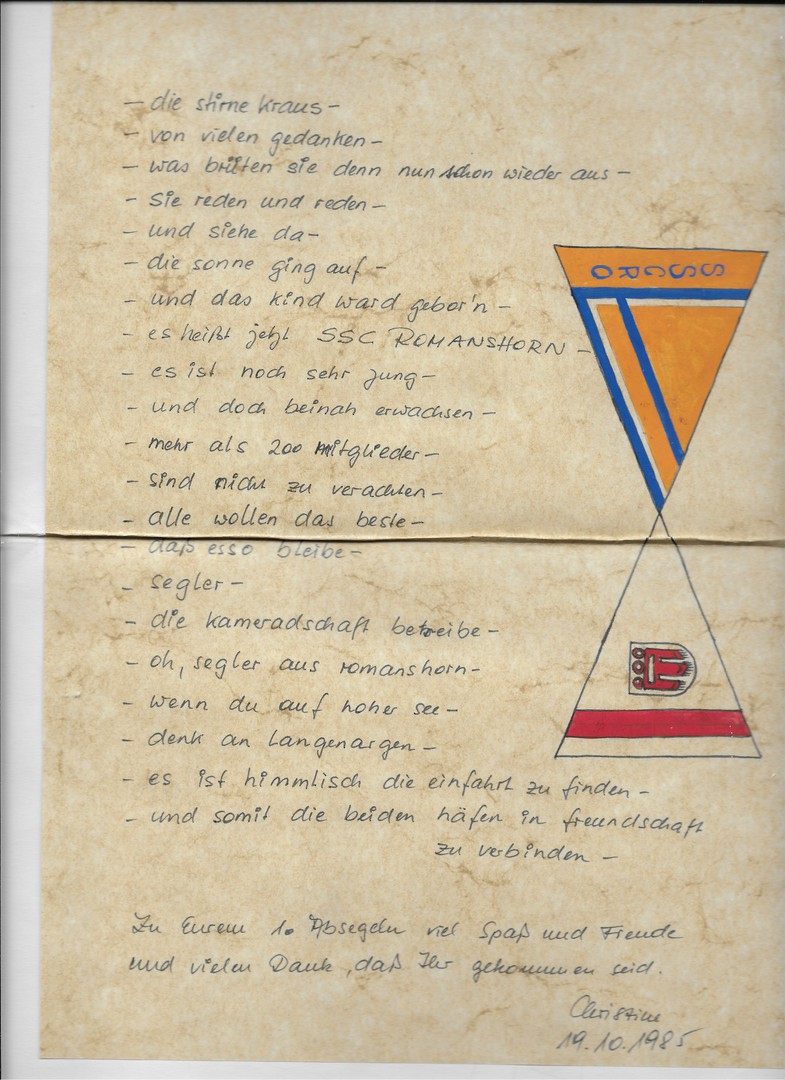 – die stirne kraus –
– von vielen gedanken –
– was brüten sie denn nun schon wieder aus –
– sie reden und reden –
– und siehe da –
– die sonne ging auf –
– und das kind ward gebor'n –
– es heißt jetzt SSC ROMANSHORN –
– es ist noch sehr jung –
– und doch beinah erwachsen –
– mehr als 200 mitglieder –
– sind nicht zu verachten –
– alle wollen das beste –
– daß es so bleibe –
– segler –
– die kameradschaft betreibe –
– oh, segler aus romanshorn –
– wenn du auf hoher see –
– denk an langenargen –
– es ist himmlisch die einfahrt zu finden –
– und somit die beiden häfen in freundschaft
zu verbinden –
SSCRO
Zu Eurem 1. Absegeln viel Spaß und Freude
und vielen Dank, daß Ihr gekommen seid.
Christine
19.10.1985